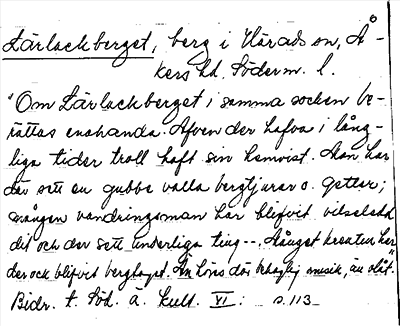 Lärlackberget, berg i Härads sn, Å-
kers hd. Söderm. l.
"Om Lärlackberget i samma socken be-
rättas enahanda. Afven der hafva i lång-
liga tider troll haft sin hemvist. Man har
där sett en gubbe valla bergtjurar o. getter;
mången vandringsman har blifvit vilseledd
dit och der sett underliga ting--. Månget kreatur har
der ock blifvit bergtaget. Än höres där behaglig musik, än olåt."
Bidr. t. Söd. ä. kult. VI: s. 113